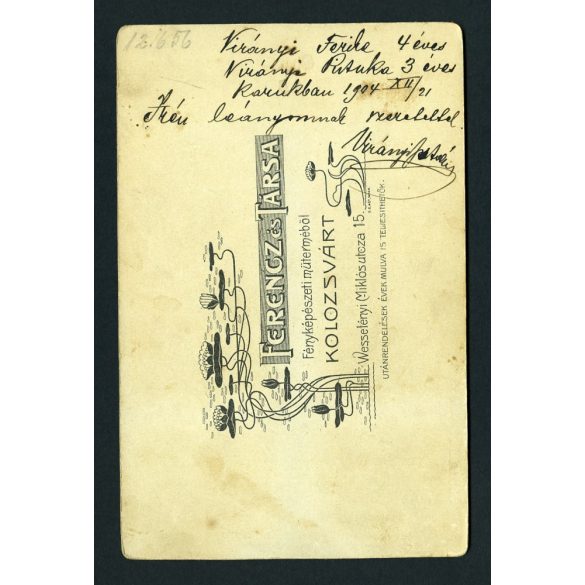 12.656
Virányi Feride 4 éves
Virányi Putuka 3 éves
Korukban 1904 XII/21
Irén leányomnak szeretettel
Virányi István
FERENCZ ÉS TÁRSA
Fényképészeti műterméből
KOLOZSVÁRT
Wesselényi Miklós utcza 15.
UTÁNRENDELÉSEK ÉVEK MULVA IS TELJESITHETŐK.